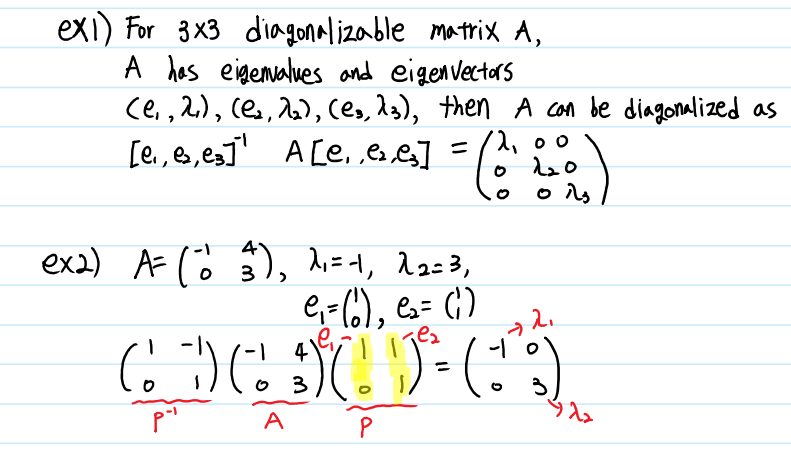 ex1) For 3x3 diagonalizable matrix A,
A has eigenvalues and eigenvectors
(e₁, λ₁), (e₂, λ₂), (e₃, λ₃), then A can be diagonalized as
[e₁, e₂, e₃]⁻¹ A [e₁, e₂, e₃] = (λ₁ 0 0
0 λ₂ 0
0 0 λ₃)
ex2) A = (-1 4
0 3), λ₁ = -1, λ₂ = 3,
e₁ = (1
0), e₂ = (1
1)
e₁ e₂ → λ₁
(1 -1) (-1 4) (1 1) = (-1 0)
(0 1) (0 3) (0 1) (0 3)
P⁻¹ A P → λ₂